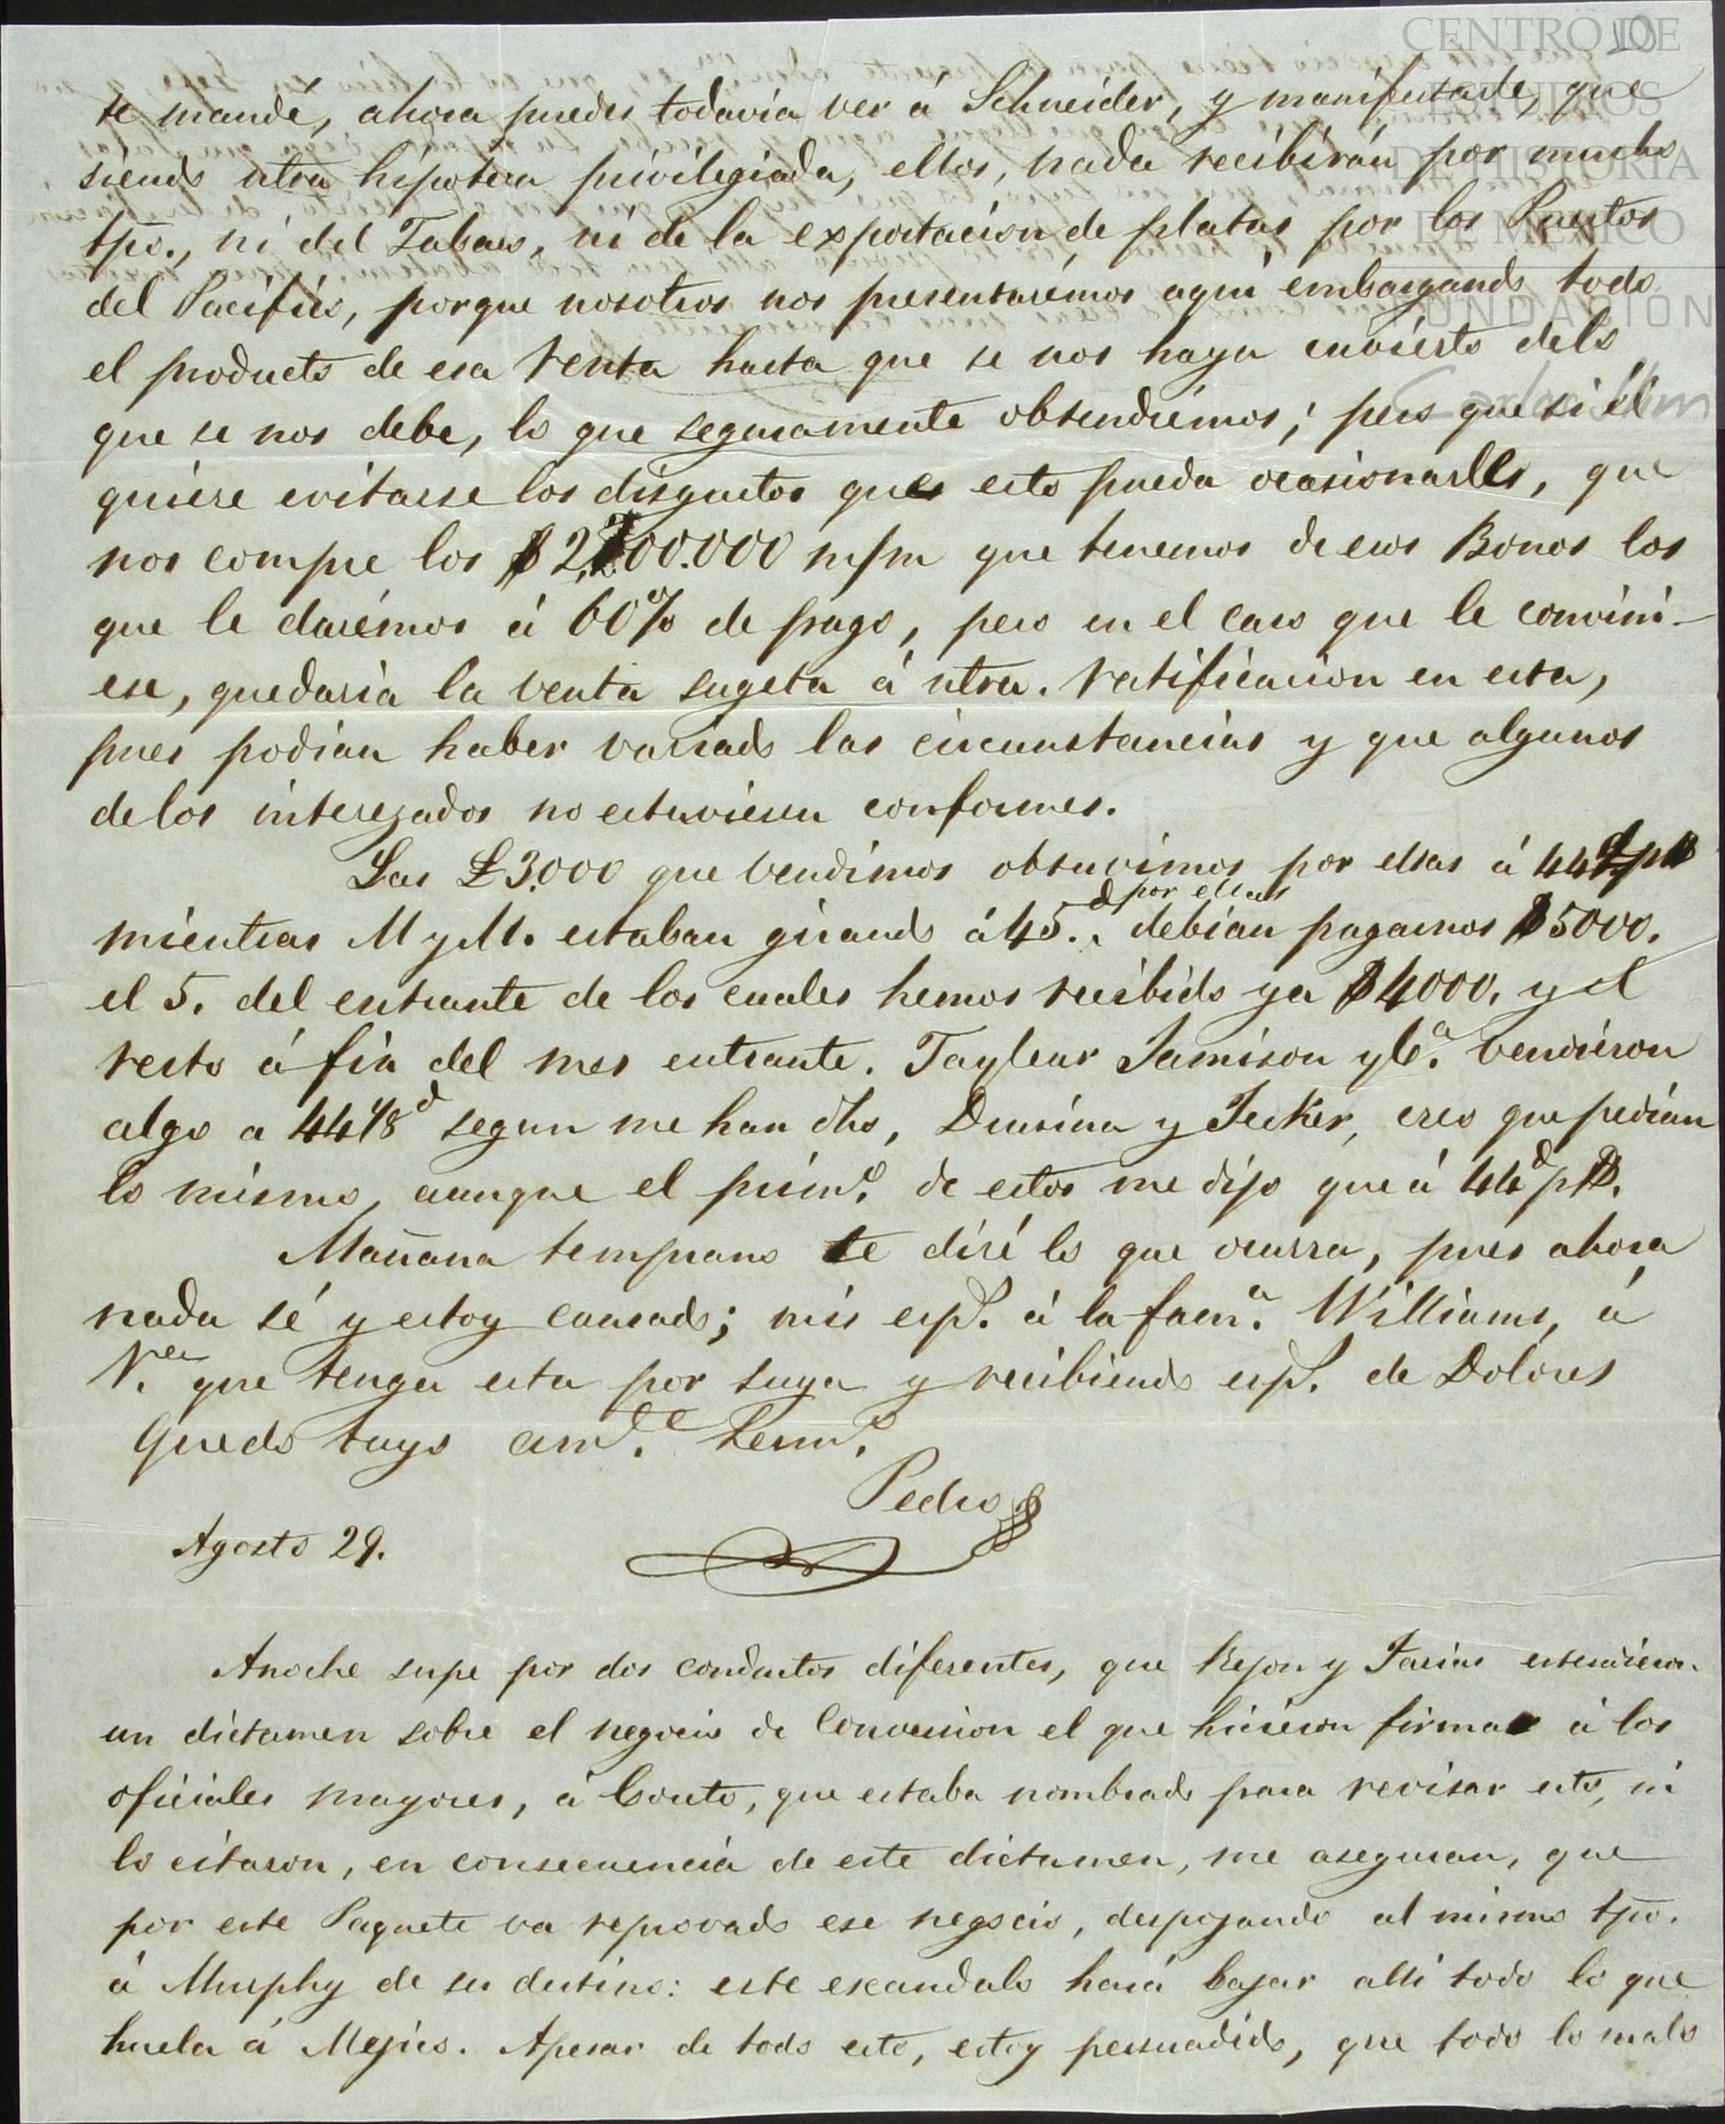 10
CENTRO DE
ESTUDIOS
DE HISTORIA
DE MEXICO
FUNDACION
te mandé, ahora puedes todavia ver á Schneider, y manifestarle, que
siendo ntra hipoteca privilegiada, ellos, nada recibirán por mucho
tpo., ni del Tabaco, ni de la exportacion de platas por los Puertos
del Pacifico, porque nosotros nos presentarémos aqui embargando todo
el producto de esa renta hasta que se nos haya cubierto delo
que se nos debe, lo que seguramente obtendrémos; pero que si él
quiere evitarse los disgustos que esto pueda ocasionarles, que
nos compre los $2,700.000 m/m que tenemos de esos Bonos los
que le darémos á 60% de pago, pero en el caso que le convini-
ese, quedaria la venta sugeta á ntra. ratificacion en esta,
pues podian haber variado las circunstancias y que algunos
delos interezados no estuviesen conformes.
Las £3.000 que vendimos obtuvimos por ellas á 44
d por ellas
mientras M y M. estaban girando á 45. debian pagarnos $5000.
el 5. del entrante de los cuales hemos recibido ya $4000. y el
resto á fin del mes entrante. Tayleur Jamison y Ca. vendieron
algo a 44 1/8 d segun me han dho, Drusina y Jecker, creo que pedian
lo mismo, aunque el primo. de estos me dijo que á 44 d p$.
Mañana temprano te diré lo que ocurra, pues ahora
nada sé y estoy cansado; mis esps. á la fama. Williams, á
que tenga esta por suya y recibiendo esps. de Dolores
Quedo tuyo amte. hermo.
Pedro
Agosto 29.
Anoche supe por dos conductos diferentes, que Rejon y Farias estendieron
un dictamen sobre el negocio de Conversion el que hicieron firmar á los
oficiales mayores, á Couto, que estaba nombrado para revisar esto, ni
lo citaron, en consecuencia de este dictamen, me aseguran, que
por este Paquete va reprovado ese negocio, despojando al mismo tpo.
á Murphy de su destino: este escandalo hará bajar alli todo lo que
huela á Mejico. Apesar de todo esto, estoy persuadido, que todo lo malo